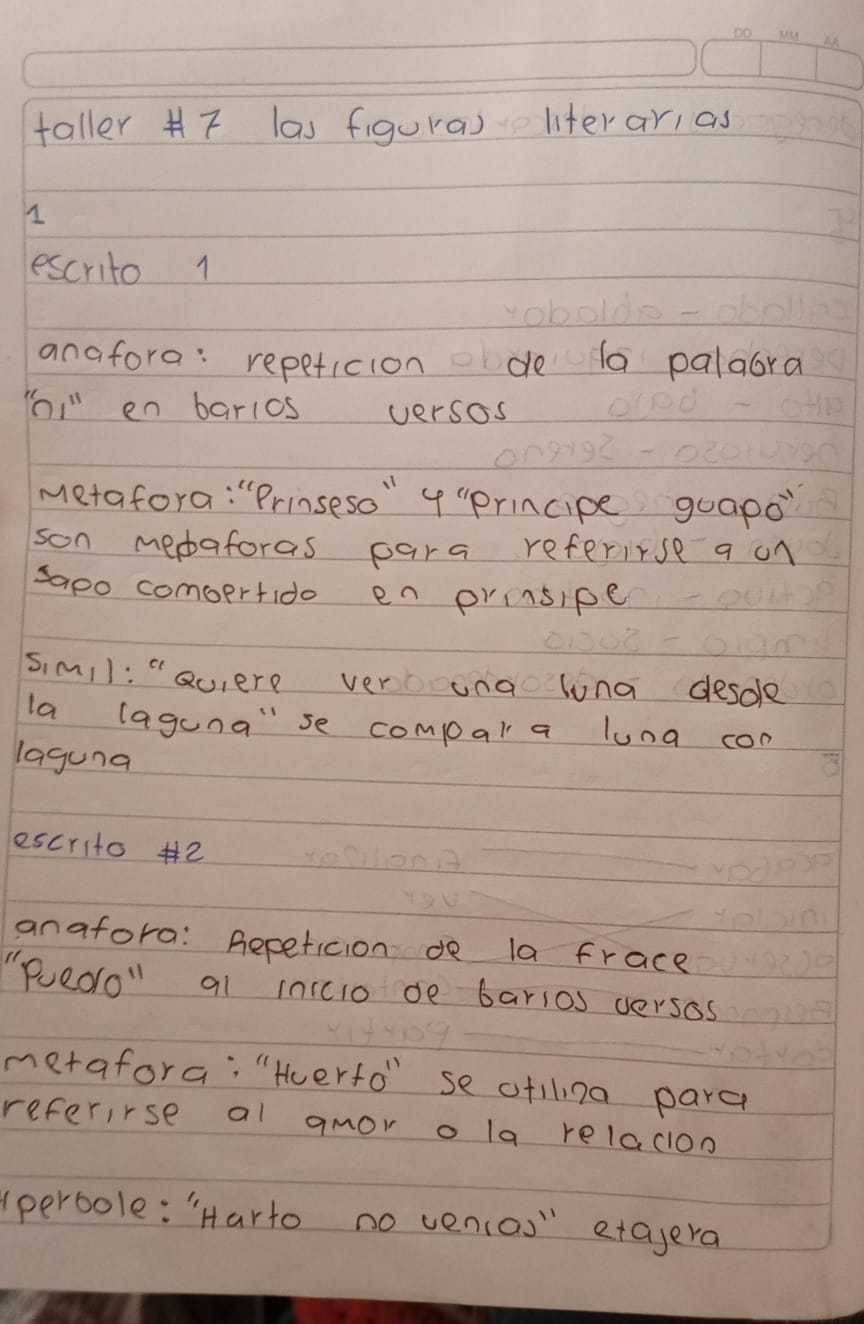 DD MM AA
taller #7 las figuras literarias
1
escrito 1
anafora: repeticion de la palabra
"ni" en barios versos
Metafora: "Prinseso" y "principe guapo"
son metaforas para referirse a un
sapo combertido en prinsipe
Simil: "Quiere ver una luna desde
la laguna" se compara luna con
laguna
escrito #2
anafora: Repeticion de la frace
"Puedo" al inicio de barios versos
metafora: "Huerto" se utiliza para
referirse al amor o la relacion
iperbole: "Harto no venias" etajera